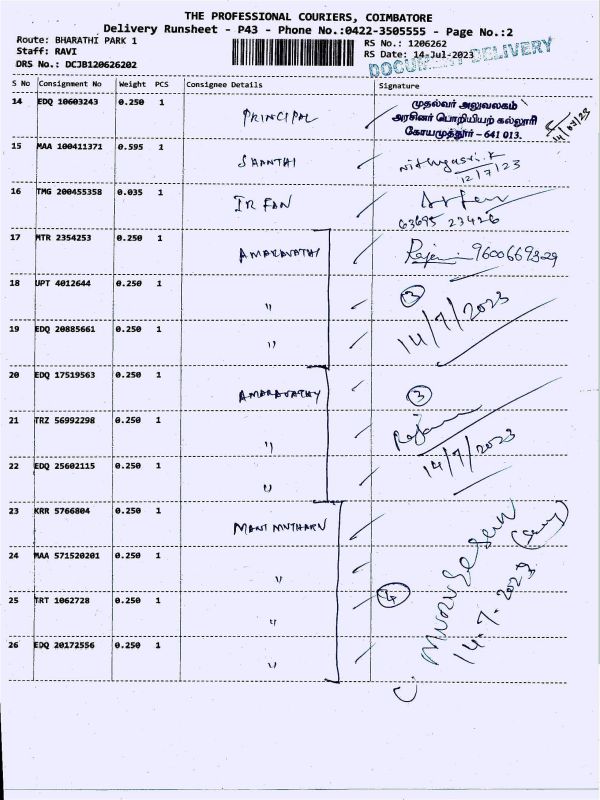 THE PROFESSIONAL COURIERS, COIMBATORE
Delivery Runsheet - P43 - Phone No.:0422-3505555 - Page No.:2
Route: BHARATHI PARK 1
Staff: RAVI
DRS No.: DCJB120626202
RS No.: 1206262
RS Date: 14-Jul-2023
DOCUMENT DELIVERY
S No Consignment No Weight PCS Consignee Details Signature
14 EDQ 10603243 0.250 1 PRINCIPAL
முதல்வர் அலுவலகம்
அரசினர் பொறியியற் கல்லூரி
கோயமுத்தூர் - 641 013.
15 MAA 100411371 0.595 1 SHANTHI Nithyasri.K
12/7/23
16 TMG 200455358 0.035 1 IRFAN Irfan
63695 23426
17 MTR 2354253 0.250 1 AMARAVATHI 9600669329
18 UPT 4012644 0.250 1 " 3
14/7/2023
19 EDQ 20885661 0.250 1 "
20 EDQ 17519563 0.250 1 AMARAVATHY 3
21 TRZ 56992298 0.250 1 "
14/7/2023
22 EDQ 25602115 0.250 1 "
23 KRR 5766804 0.250 1 MANI MUTHARU
24 MAA 571520201 0.250 1 "
25 TRT 1062728 0.250 1 " 4
C. Murugesan
14.7.2023
26 EDQ 20172556 0.250 1 "